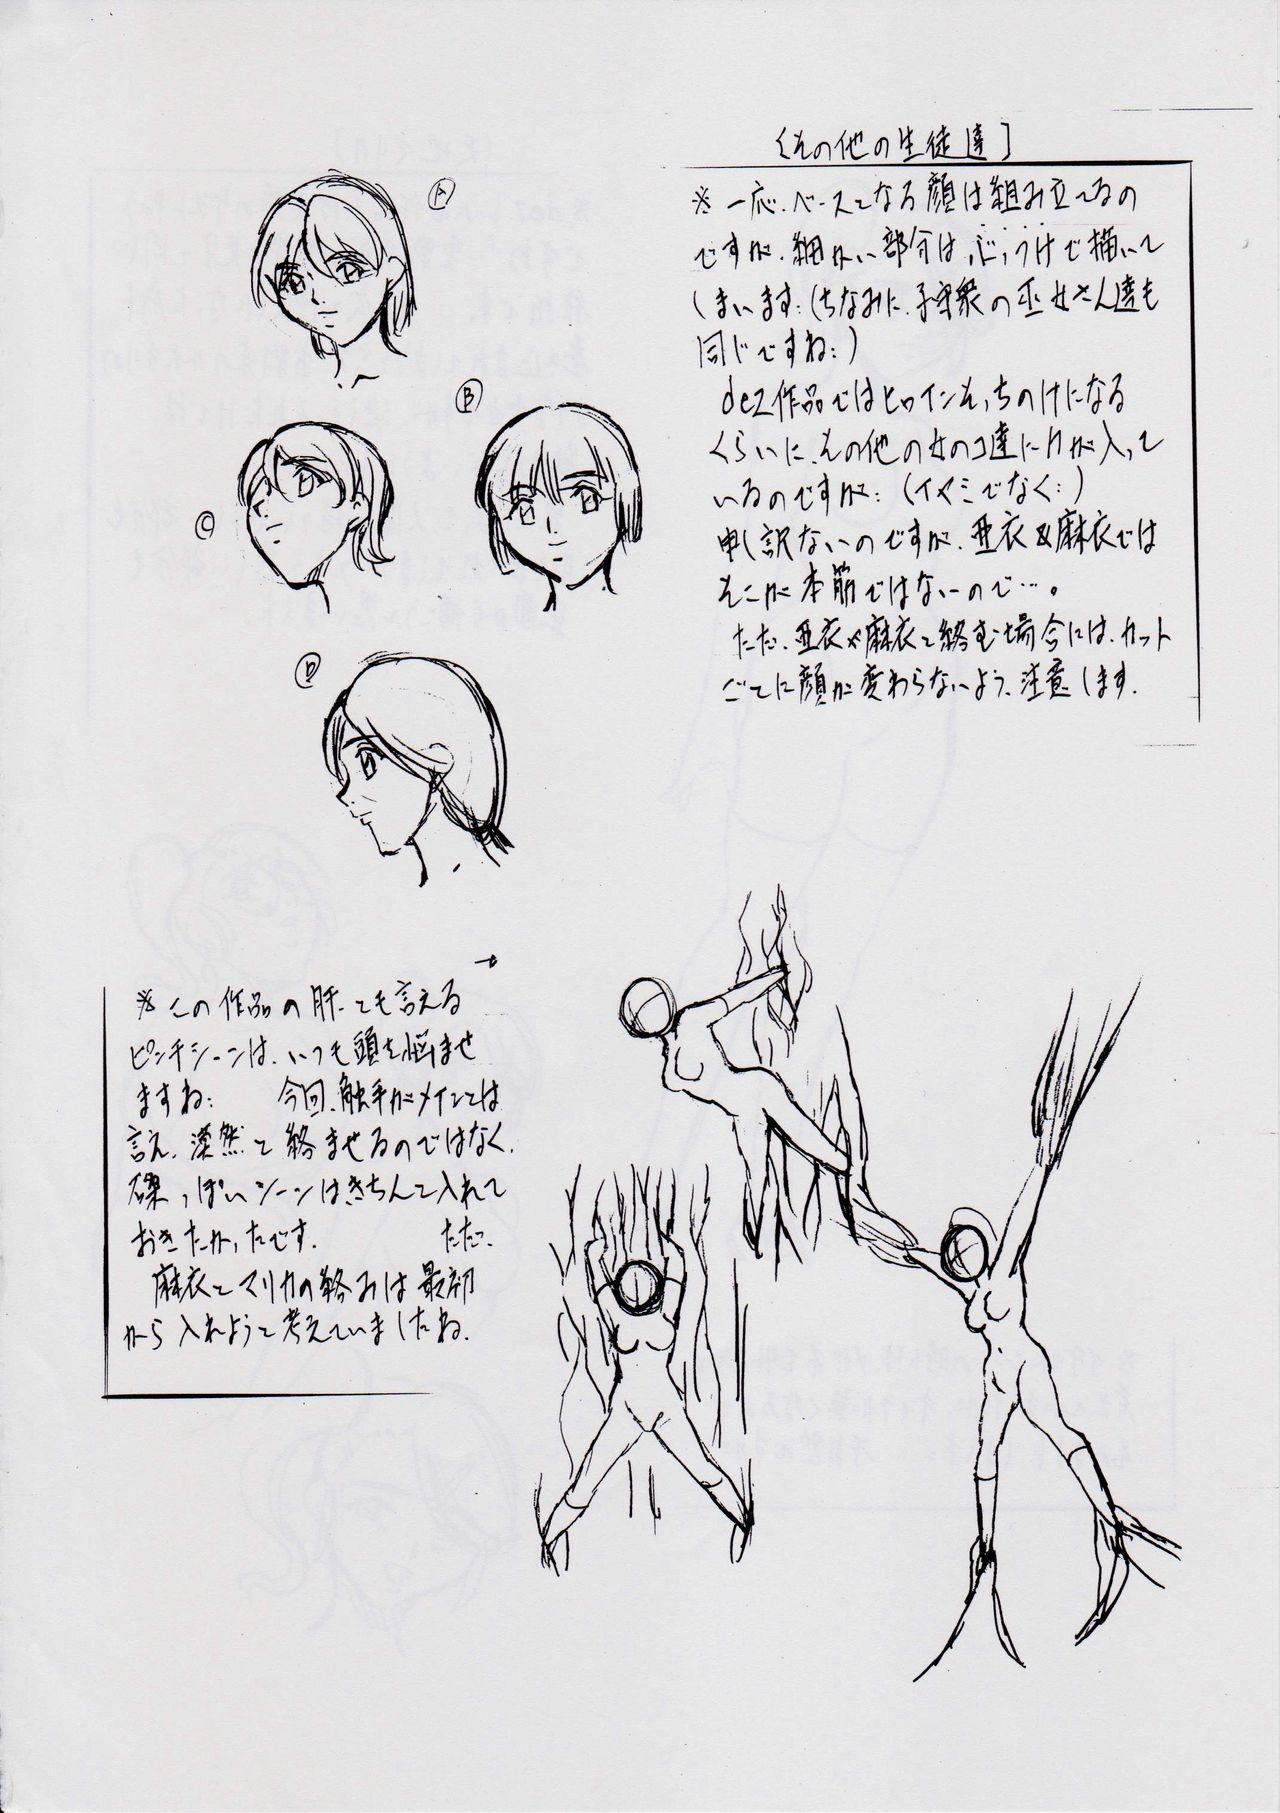 [その他の生徒達]
※一応、ベースとなる顔は組み立てるの
ですが、細かい部分はぶっつけで描いて
しまいます;(ちなみに、子守衆の巫女さん達も
同じですね;)
dez作品ではヒロインそっちのけになる
くらいに、その他の女のコ達に力が入って
いるのですが;(イヤミでなく;)
申し訳ないのですが、亜衣&麻衣では
そこが本筋ではないので…。
ただ、亜衣や麻衣と絡む場合には、カット
ごとに顔が変わらないよう、注意します.
A
B
C
D
※この作品の肝とも言える
ピンチシーンは、いつも頭を悩ませ
ますね; 今回、触手がメインとは
言え、漠然と絡ませるのではなく、
磔っぽいシーンはきちんと入れて
おきたかったです. ただ、
麻衣とマリカの絡みは最初
から入れようと考えていましたね.